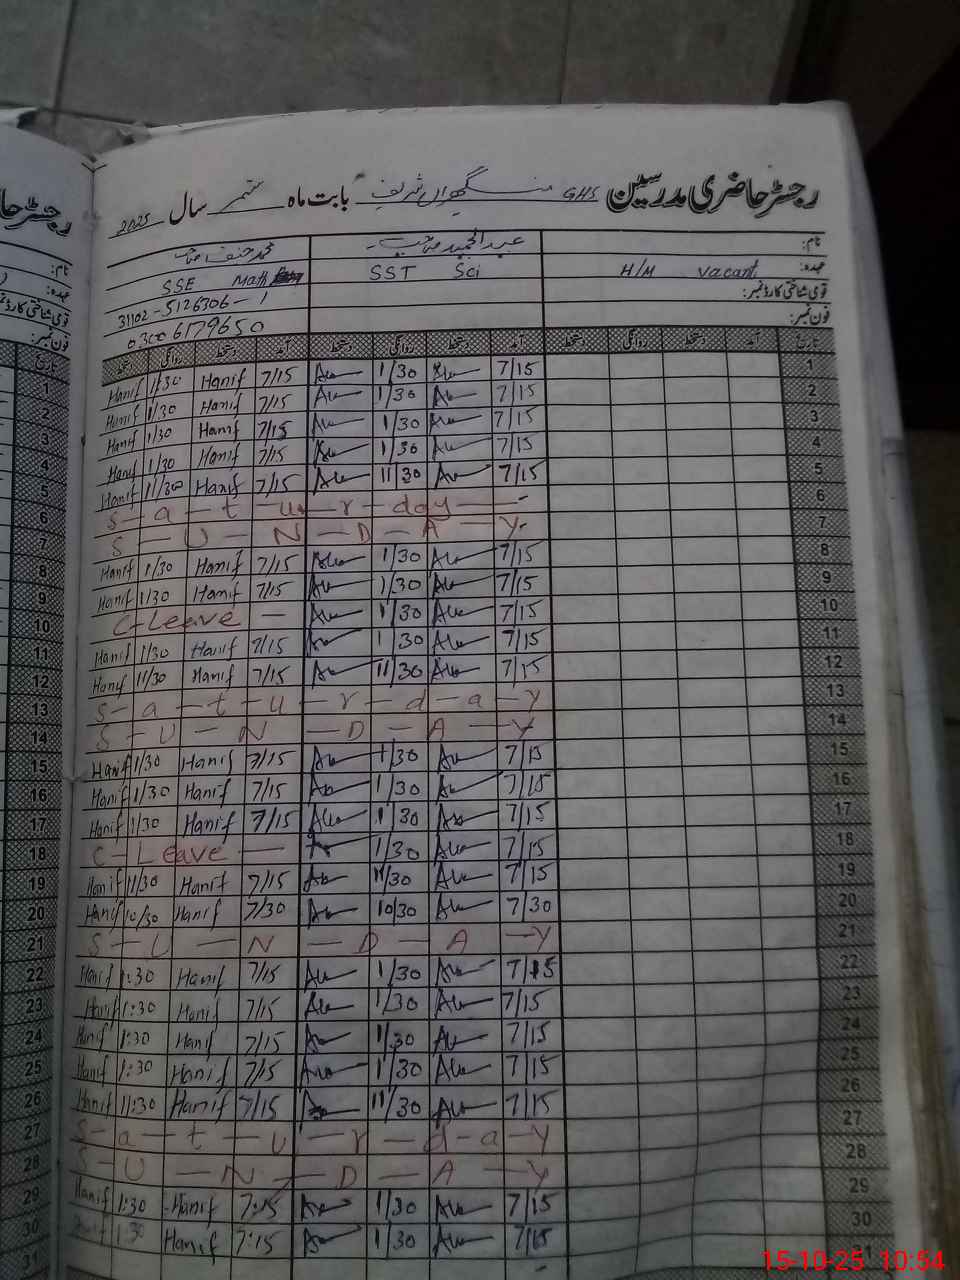 رجسٹر حاضری مدرسین GHS منگھراں شریف بابت ماہ ستمبر سال 2025
نام: عبدالحمید صاحب محمد حنیف صاحب
عہدہ: H/M vacant SST Sci SSE Math
قومی شناختی کارڈ نمبر: 31102-5126306-1
فون نمبر: 03006179650
تاریخ آمد دستخط روانگی دستخط آمد دستخط روانگی دستخط آمد دستخط روانگی دستخط
1 Hanif 1/30 Hanif 7/15 1/30 7/15 1
2 Hanif 1/30 Hanif 7/15 1/30 7/15 2
3 Hanif 1/30 Hanif 7/15 1/30 7/15 3
4 Hanif 1/30 Hanif 7/15 1/30 7/15 4
5 Hanif 11/30 Hanif 7/15 11/30 7/15 5
6 S-a-t-u-r-day 6
7 S-U-N-D-A-Y 7
8 Hanif 1/30 Hanif 7/15 1/30 7/15 8
9 Hanif 1/30 Hanif 7/15 1/30 7/15 9
10 C-Leave - 1/30 7/15 10
11 Hanif 1/30 Hanif 7/15 1/30 7/15 11
12 Hanif 11/30 Hanif 7/15 11/30 7/15 12
13 S-a-t-u-r-d-a-y 13
14 S-U-N-D-A-Y 14
15 Hanif 1/30 Hanif 7/15 1/30 7/15 15
16 Hanif 1/30 Hanif 7/15 1/30 7/15 16
17 Hanif 1/30 Hanif 7/15 1/30 7/15 17
18 C-Leave - 1/30 7/15 18
19 Hanif 11/30 Hanif 7/15 11/30 7/15 19
20 Hanif 10/30 Hanif 7/30 10/30 7/30 20
21 S-U-N-D-A-Y 21
22 Hanif 1:30 Hanif 7/15 1/30 7/15 22
23 Hanif 1:30 Hanif 7/15 1/30 7/15 23
24 Hanif 1:30 Hanif 7/15 1/30 7/15 24
25 Hanif 1:30 Hanif 7/15 1/30 7/15 25
26 Hanif 11:30 Hanif 7/15 11/30 7/15 26
27 S-a-t-u-r-d-a-y 27
28 S-U-N-D-A-Y 28
29 Hanif 1:30 Hanif 7:15 1/30 7/15 29
30 1:30 Hanif 7:15 1/30 7/15 30
31 31
15-10-25 10:54